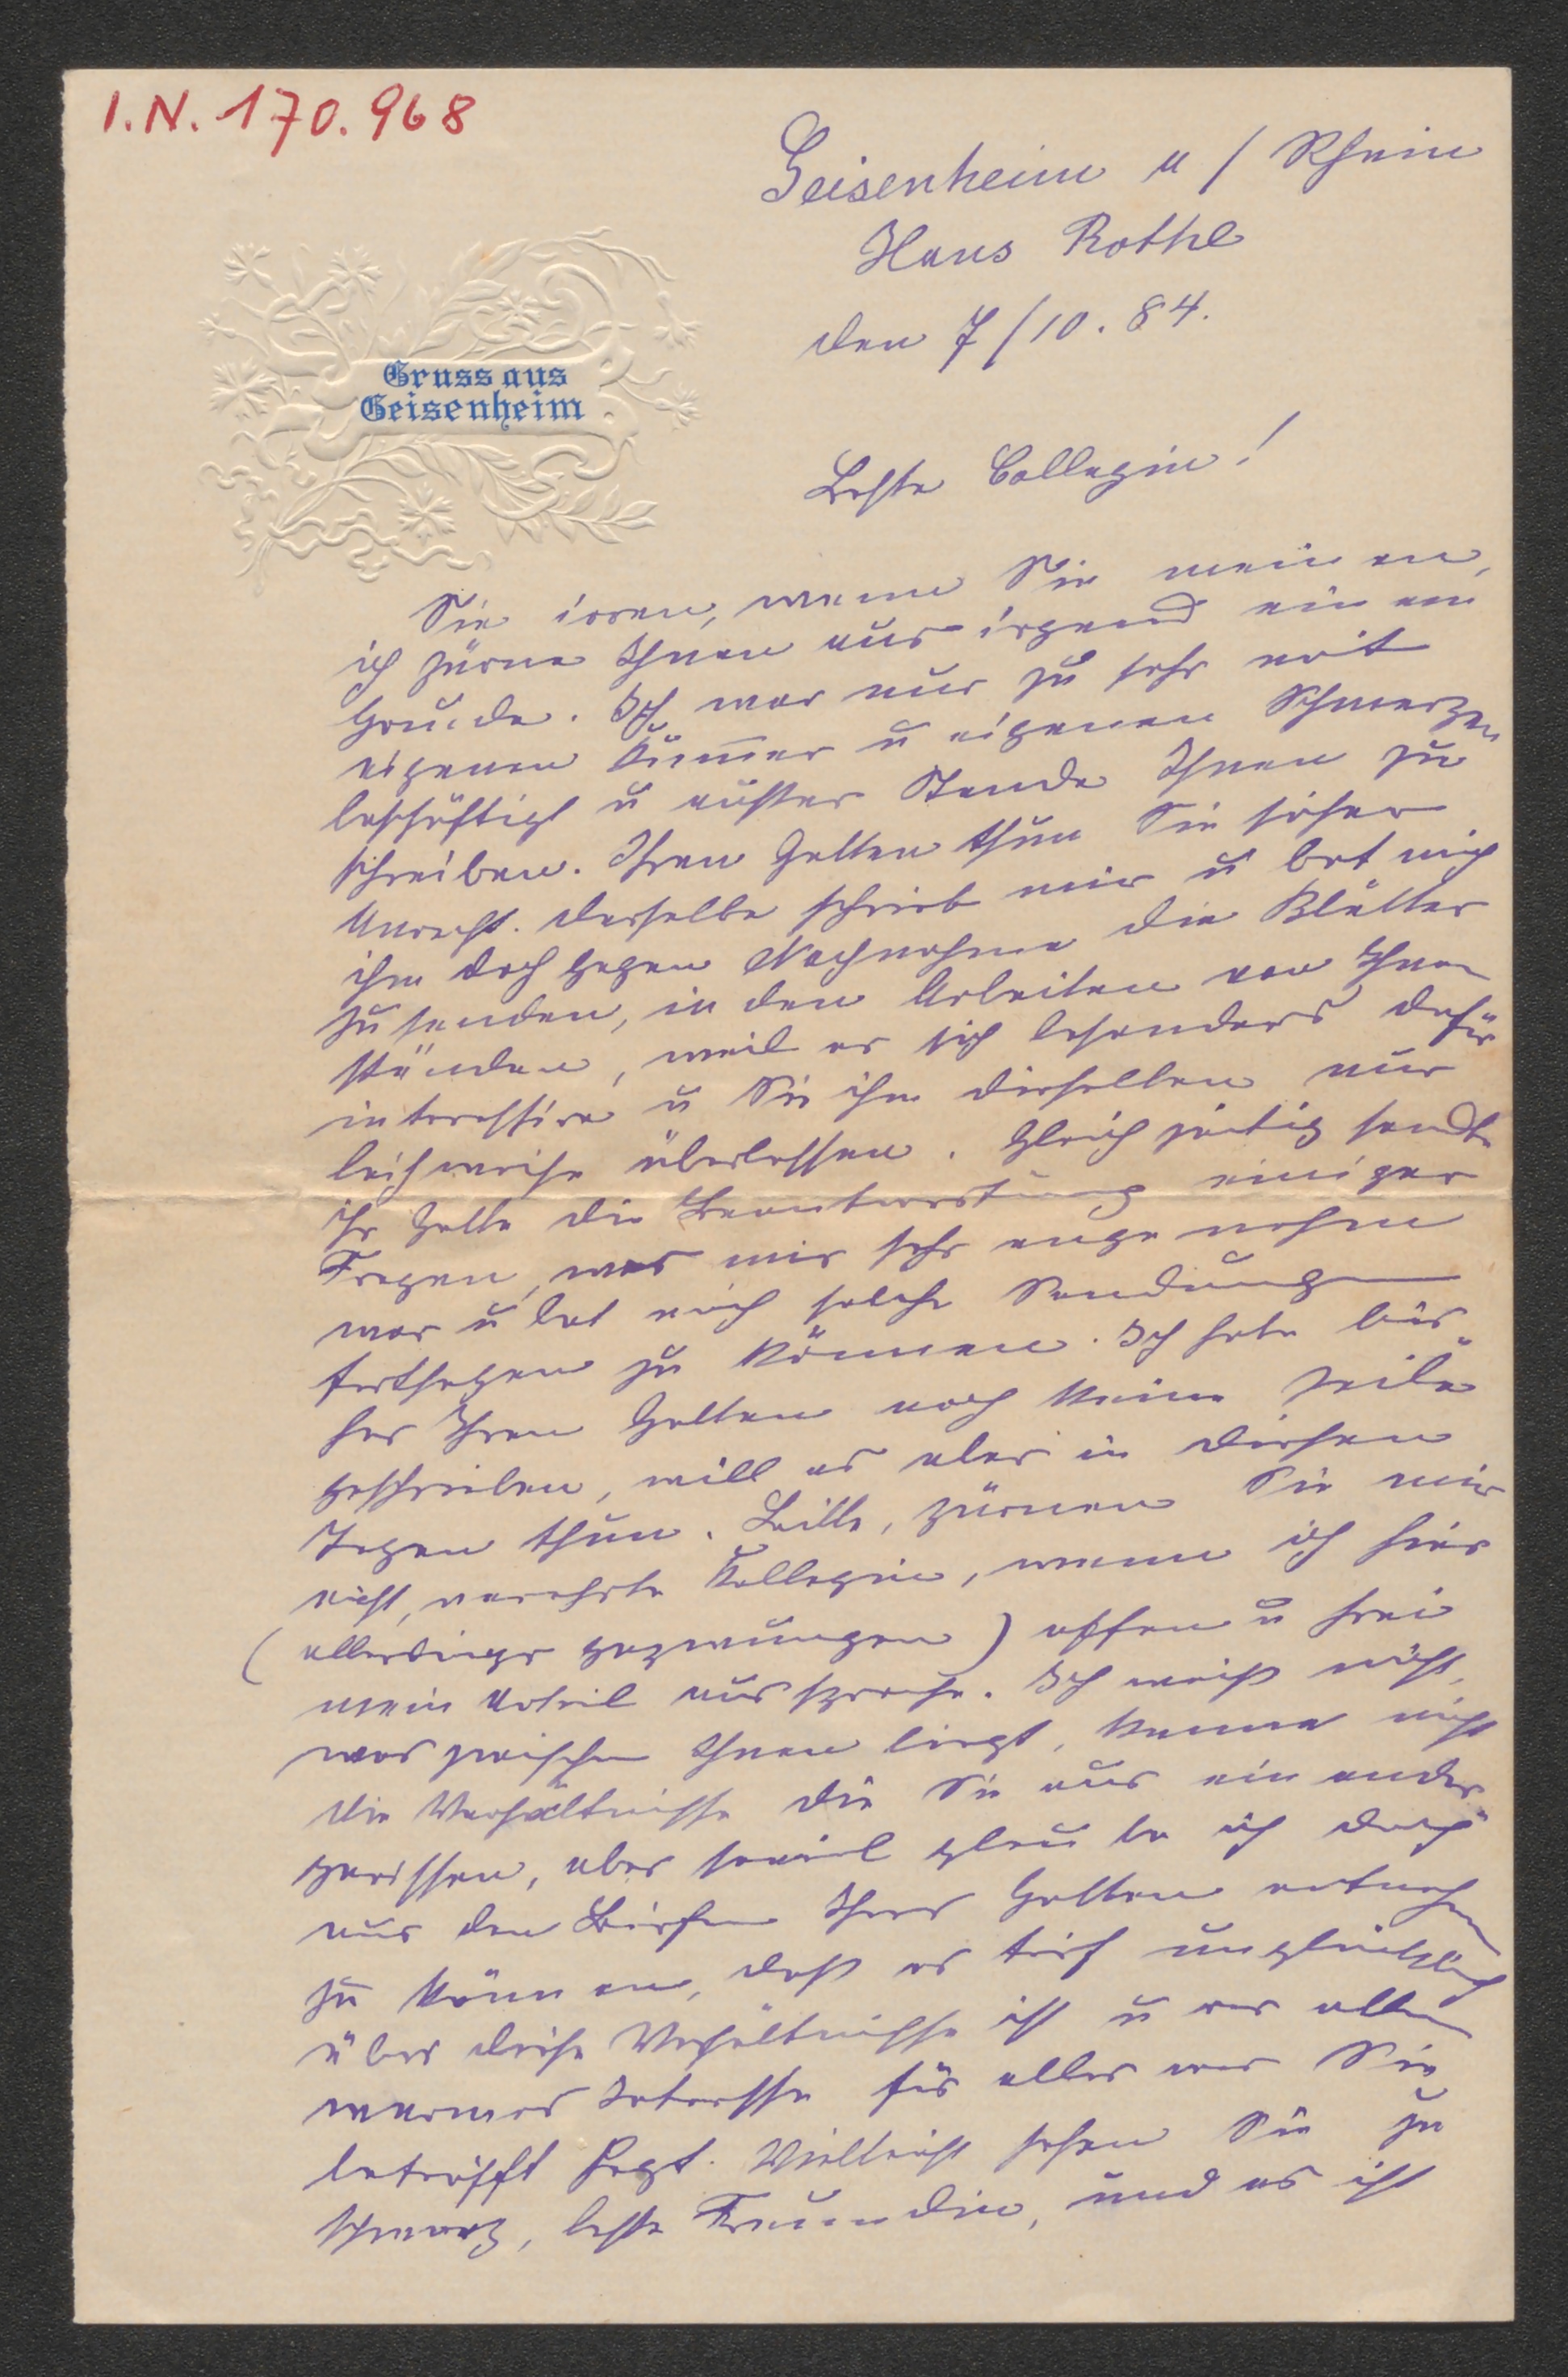 I.N. 170.968
Geisenheim a / Rhein
Haus Rothe
den 7/10. 84.
Gruss aus
Geisenheim
Beste Collegin!
Sie irren, wenn Sie meinen,
ich zürne Ihnen aus irgend einem
Grunde. Ich war nur zu sehr mit
eigenem Kummer u eigenen Schmerzen
beschäftigt u ausser Stande Ihnen zu
schreiben. Ihren Gatten thun Sie sicher
Unrecht. Derselbe schrieb mir u bat mich
ihm doch gegen Nachnahme die Blätter
zu senden, in den Arbeiten von Ihnen
ständen, weil er sich besonders dafür
interessire u Sie ihm dieselben nur
leihweise überlassen. Gleichzeitig sandte
Ihr Gatte die Beantwortung einiger
Fragen, was mir sehr angenehm
war u bat mich solche Sendungen
fortsetzen zu können. Ich habe bis
her Ihren Gatten noch keine Zeile
geschrieben, will es aber in diesen
Tagen thun. Bitte, zürnen Sie mir
nicht, verehrte Kollegin, wenn ich hier
(allerdings gezwungen) offen u frei
mein Urteil ausspreche. Ich weiß nicht,
was zwischen Ihnen liegt, kenne nicht
die Verhältnisse die Sie aus einander
gerissen, aber soviel glaube ich doch
aus den Briefen Ihres Gatten entnehmen
zu können, daß er tief unglücklich
über diese Verhältnisse ist u vor allem
warmes Interesse für alles was Sie
betrifft hegt. Vielleicht sehen Sie zu
schwarz, beste Freundin, und es ist